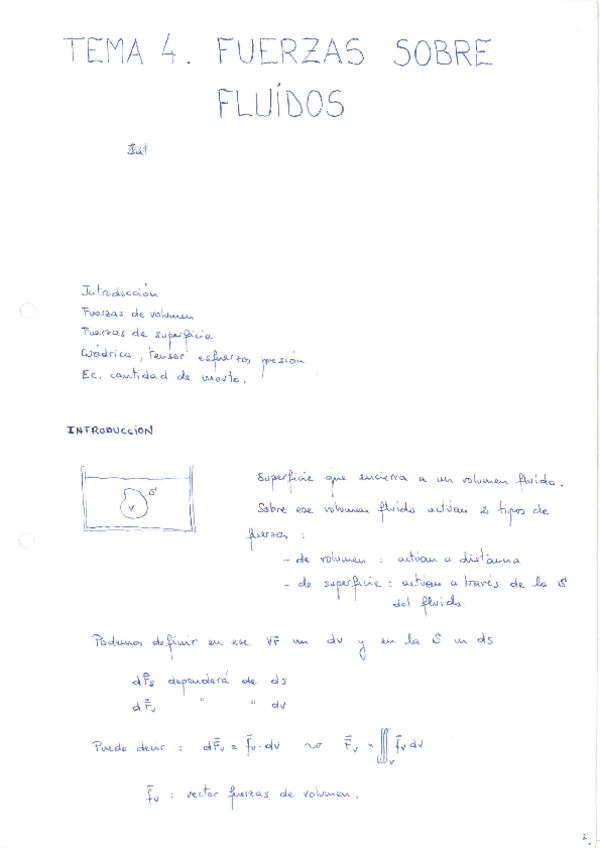 TEMA 4. FUERZAS SOBRE
FLUÍDOS
Introducción
Fuerzas de volumen
Fuerzas de superficie
Cuádrica, tensor esfuerzos presión
Ec. cantidad de movto.
INTRODUCCION
S
V
Superficie que encierra a un volumen fluido.
Sobre ese volumen fluido actúan 2 tipos de
fuerzas :
- de volumen : actúan a distancia
- de superficie : actúan a través de la S
del fluido.
Podemos definir en ese VF un dv y en la S un ds
dF̄s dependerá de ds
dF̄v " " dv
Puedo decir : dF̄v = f̄v · dv ⤳ F̄v = ∭v f̄v dv
f̄v : vector fuerzas de volumen.
2